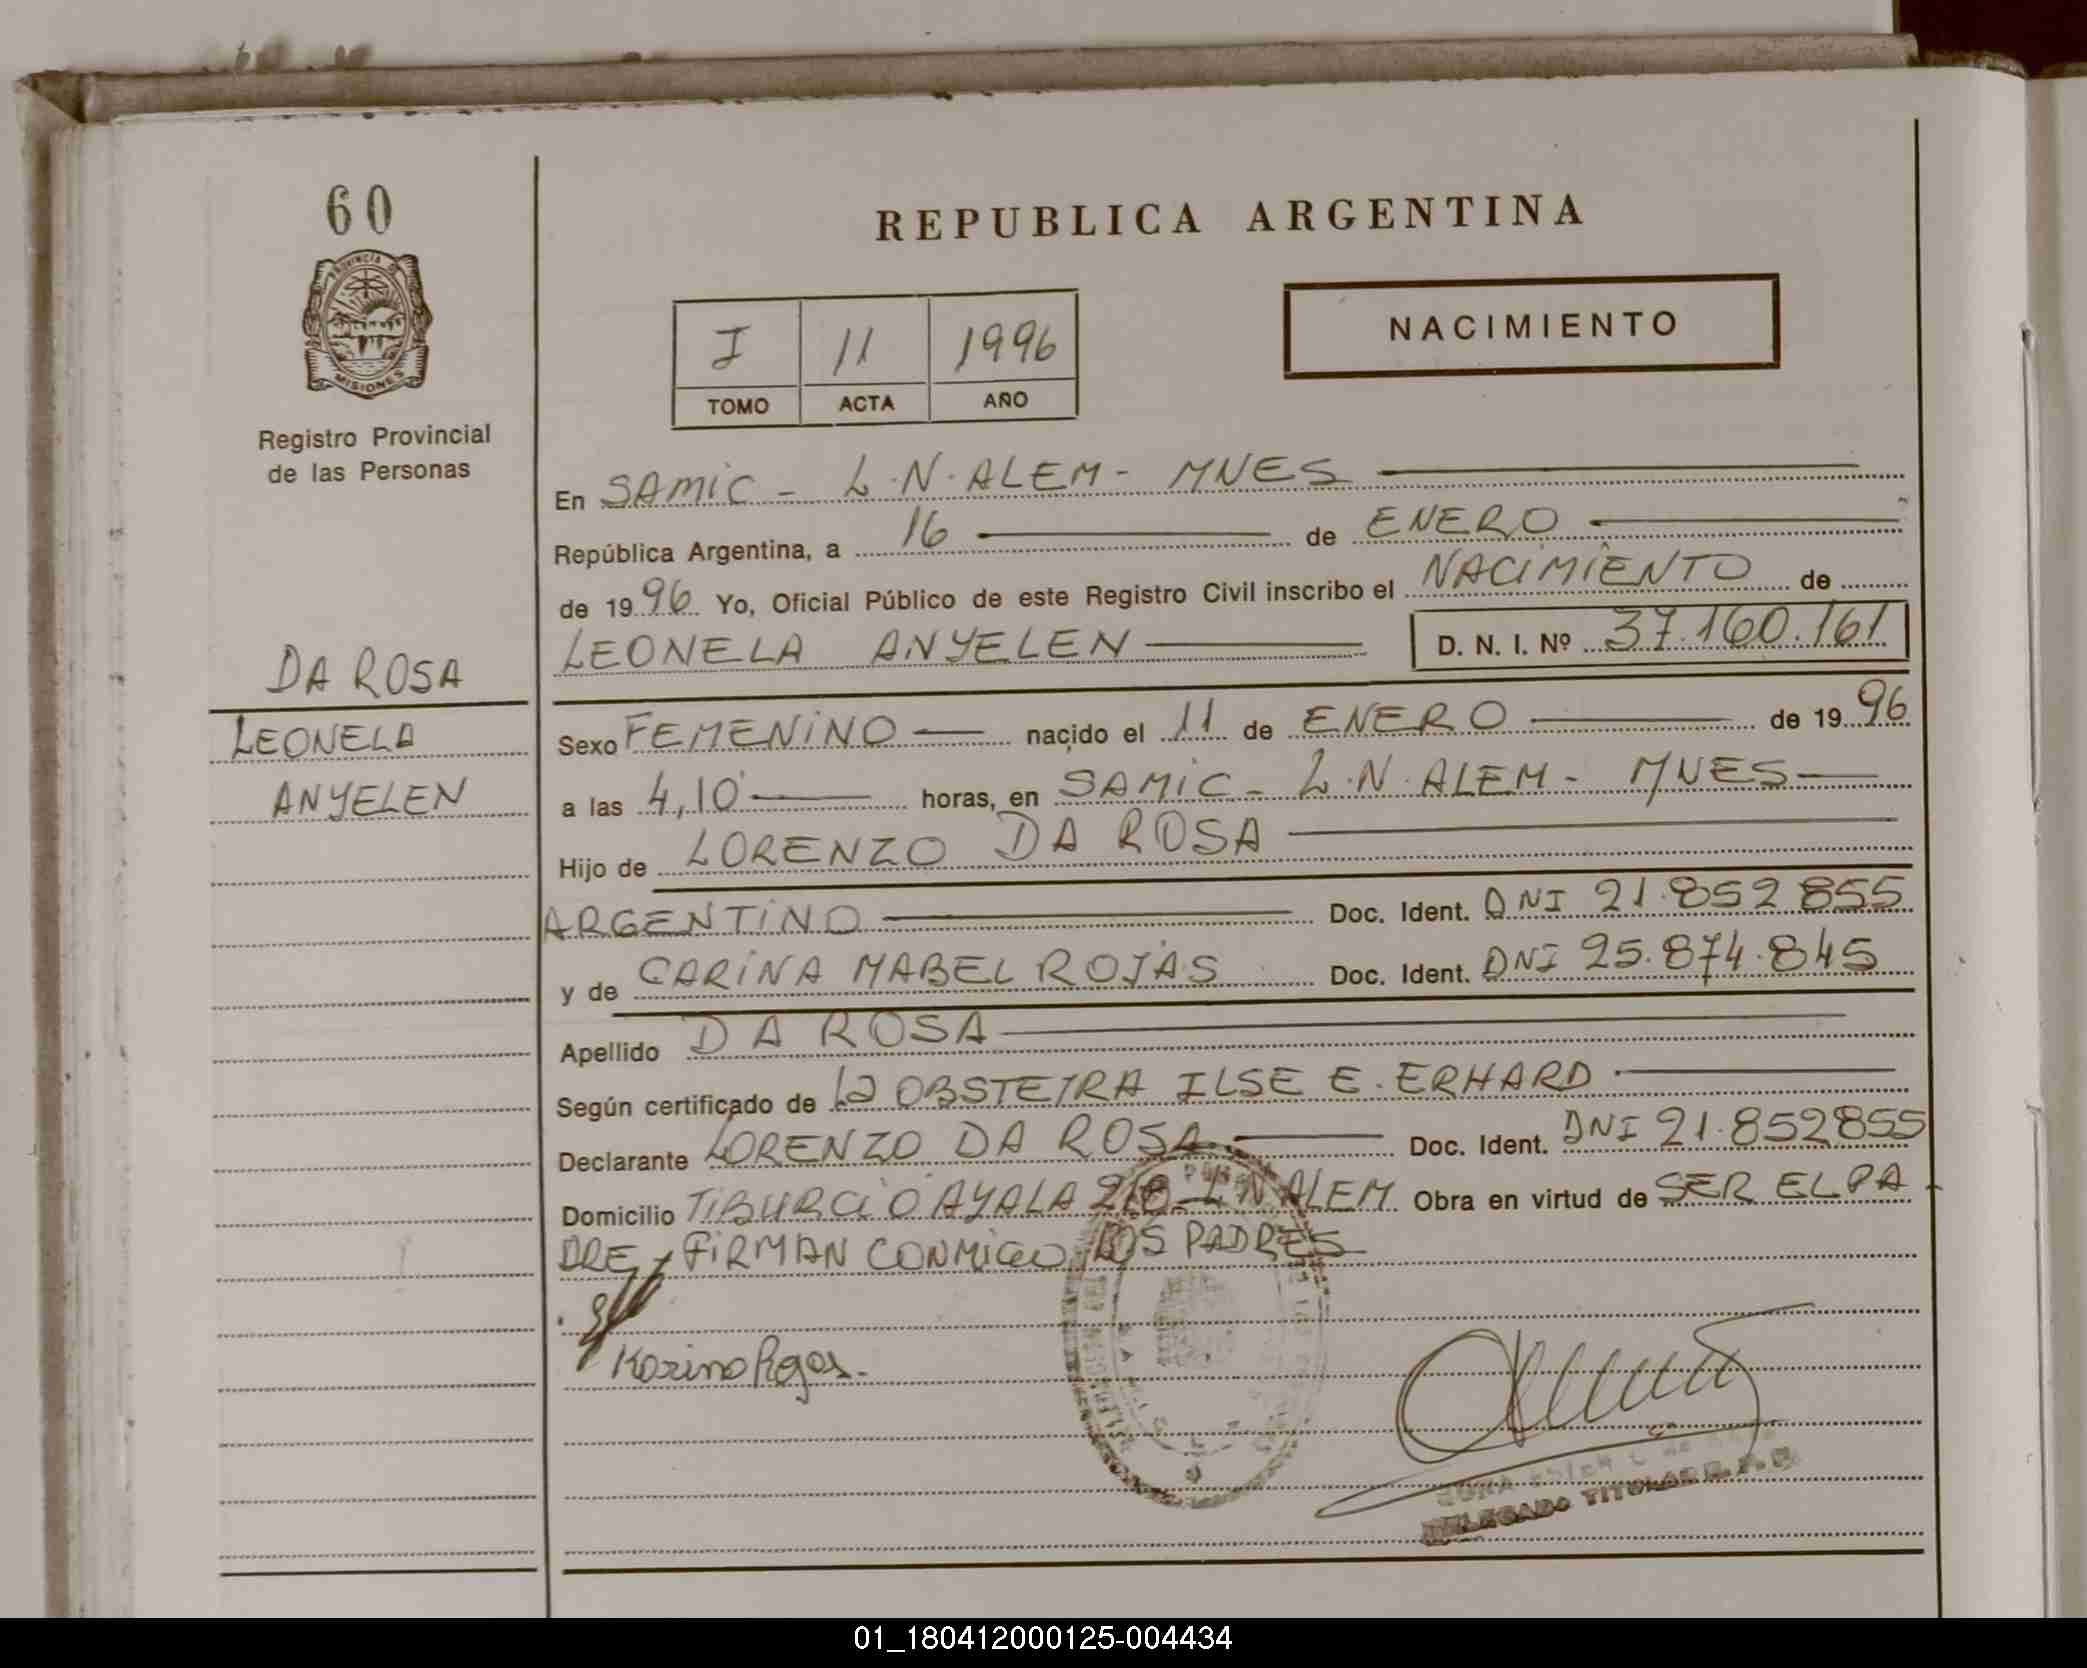 60
PROVINCIA DE
MISIONES
Registro Provincial
de las Personas
DA ROSA
LEONELA
ANYELEN
REPUBLICA ARGENTINA
I 11 1996
TOMO ACTA AÑO
NACIMIENTO
En SAMIC - L.N. ALEM - MNES
República Argentina, a 16 de ENERO
de 1996 Yo, Oficial Público de este Registro Civil inscribo el NACIMIENTO de
LEONELA ANYELEN D. N. I. Nº 37.160.161
Sexo FEMENINO nacido el 11 de ENERO de 1996
a las 4,10 horas, en SAMIC - L.N. ALEM - MNES
Hijo de LORENZO DA ROSA
ARGENTINO Doc. Ident. DNI 21.852855
y de CARINA MABEL ROJAS Doc. Ident. DNI 25.874.845
Apellido DA ROSA
Según certificado de La OBSTETRA ILSE E. ERHARD
Declarante LORENZO DA ROSA Doc. Ident. DNI 21.852855
Domicilio TIBURCIO AYALA L.N ALEM Obra en virtud de SER EL PA
DRE, FIRMAN CONMIGO LOS PADRES
Karina Rojas.
DELEGADO TITULAR R. P. P.
01_180412000125-004434